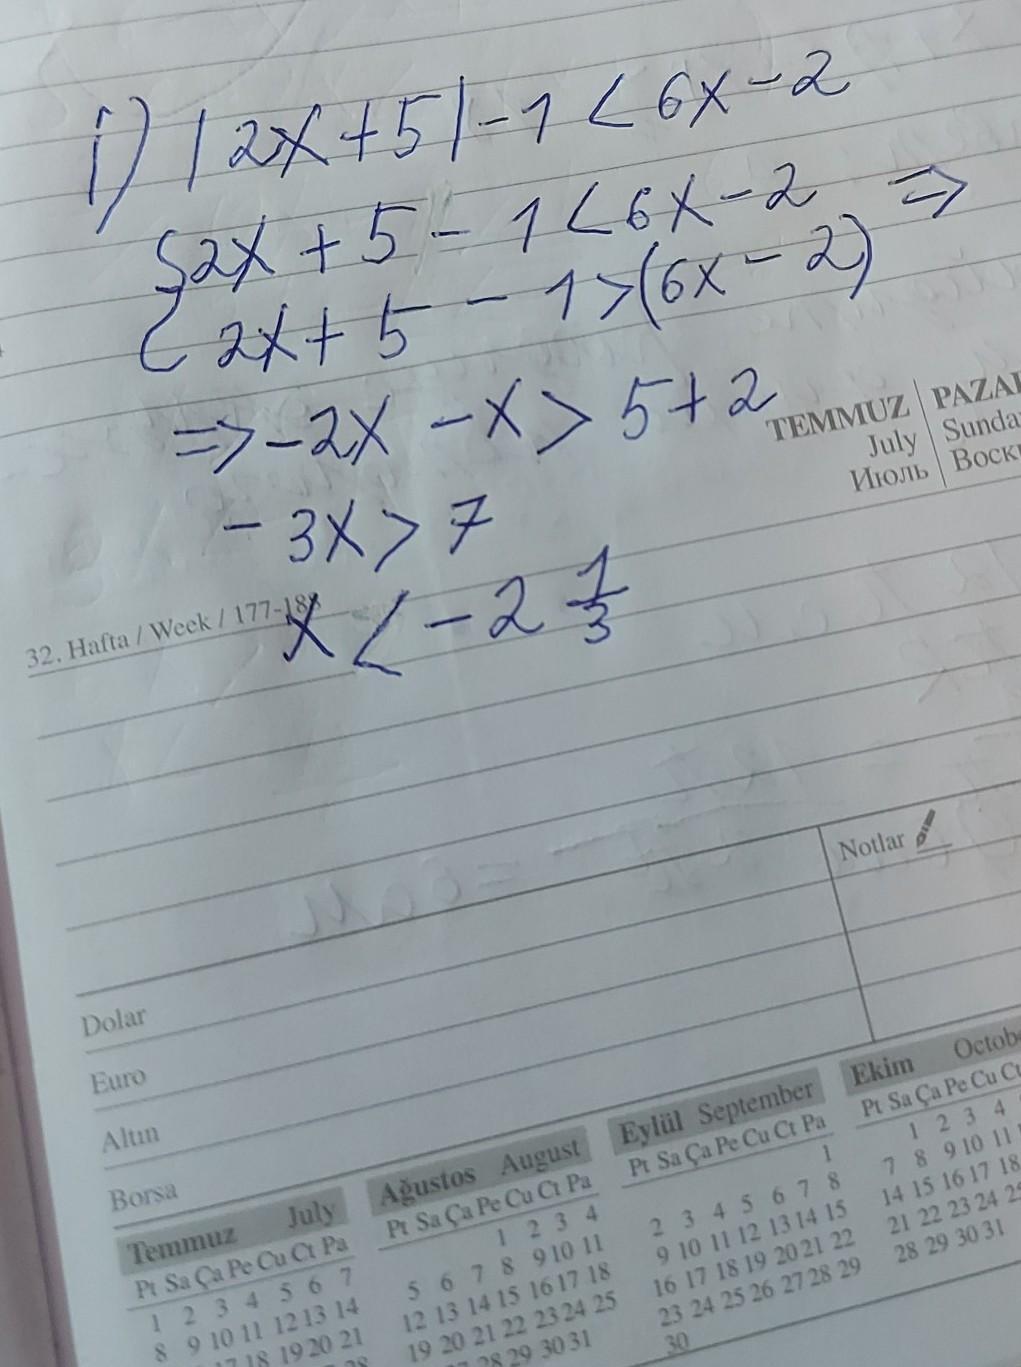 i) |2x+5|-1<6x-2
{2x+5-1<6x-2 ⇒
2x+5-1>(6x-2)
⇒-2x-x>5+2
-3x>7
x<-2 1/3
TEMMUZ PAZAR
July Sunday
Июль
32. Hafta / Week / 177-188
Notlar
Dolar
Euro
Altın
Borsa
Temmuz July
Pt Sa Ça Pe Cu Ct Pa
1 2 3 4 5 6 7
8 9 10 11 12 13 14
18 19 20 21
Ağustos August
Pt Sa Ça Pe Cu Ct Pa
1 2 3 4
5 6 7 8 9 10 11
12 13 14 15 16 17 18
19 20 21 22 23 24 25
28 29 30 31
Eylül September
Pt Sa Ça Pe Cu Ct Pa
1
2 3 4 5 6 7 8
9 10 11 12 13 14 15
16 17 18 19 20 21 22
23 24 25 26 27 28 29
30
Ekim October
Pt Sa Ça Pe Cu
1 2 3 4
7 8 9 10 11
14 15 16 17 18
21 22 23 24 25
28 29 30 31